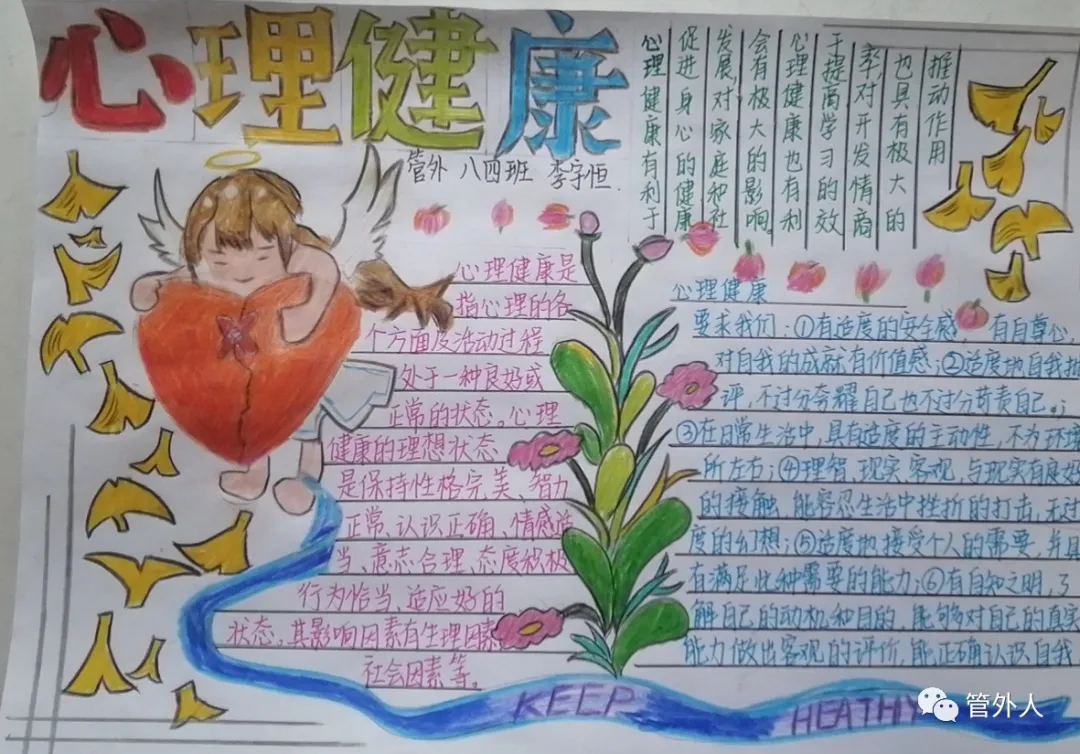 心理健康
管外 八四班 李宇恒
心理健康有利于
促进身心的健康
发展,对家庭和社
会有极大的影响。
心理健康也有利
于提高学习的效
率,对开发情商
也具有极大的
推动作用
心理健康是
指心理的各
个方面及活动过程
处于一种良好或
正常的状态。心理
健康的理想状态
是保持性格完美、智力
正常、认识正确、情感适
当、意志合理、态度积极
行为恰当、适应好的
状态。其影响因素有生理因素
社会因素等。
心理健康
要求我们:①有适度的安全感 有自尊心,
对自我的成就有价值感;②适度地自我批
评,不过分夸耀自己也不过分苛责自己。;
③在日常生活中,具有适度的主动性,不为环境
所左右;④理智、现实、客观,与现实有良好
的接触,能容忍生活中挫折的打击,无过
度的幻想;⑤适度地接受个人的需要,并且
有满足此种需要的能力;⑥有自知之明,了
解自己的动机和目的,能够对自己的真实
能力做出客观的评价,能正确认识自我
KEEP HEATHY
管外人